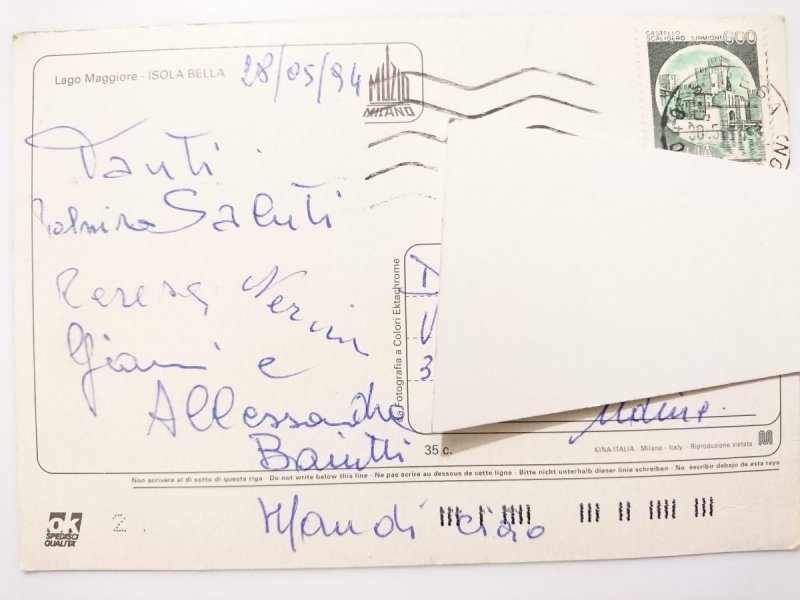 Lago Maggiore - ISOLA BELLA
28/05/94
MUZIO
MILANO
CASTELLO
SCALIGERO SIRMIONE
600
Tanti
Palmira Saluti
Teresa Nerin
Gianni e
Allessandra
Mandi ciao
Da Fotografia a Colori Ektachrome
Udine.
35 c.
KINA ITALIA - Milano - Italy - Riproduzione vietata
Non scrivere al di sotto di questa riga - Do not write below this line - Ne pas écrire au dessous de cette ligne - Bitte nicht unterhalb dieser linie schreiben - No escribir debajo de esta raya
ok
SPEDISCI
QUALITÀ
2.